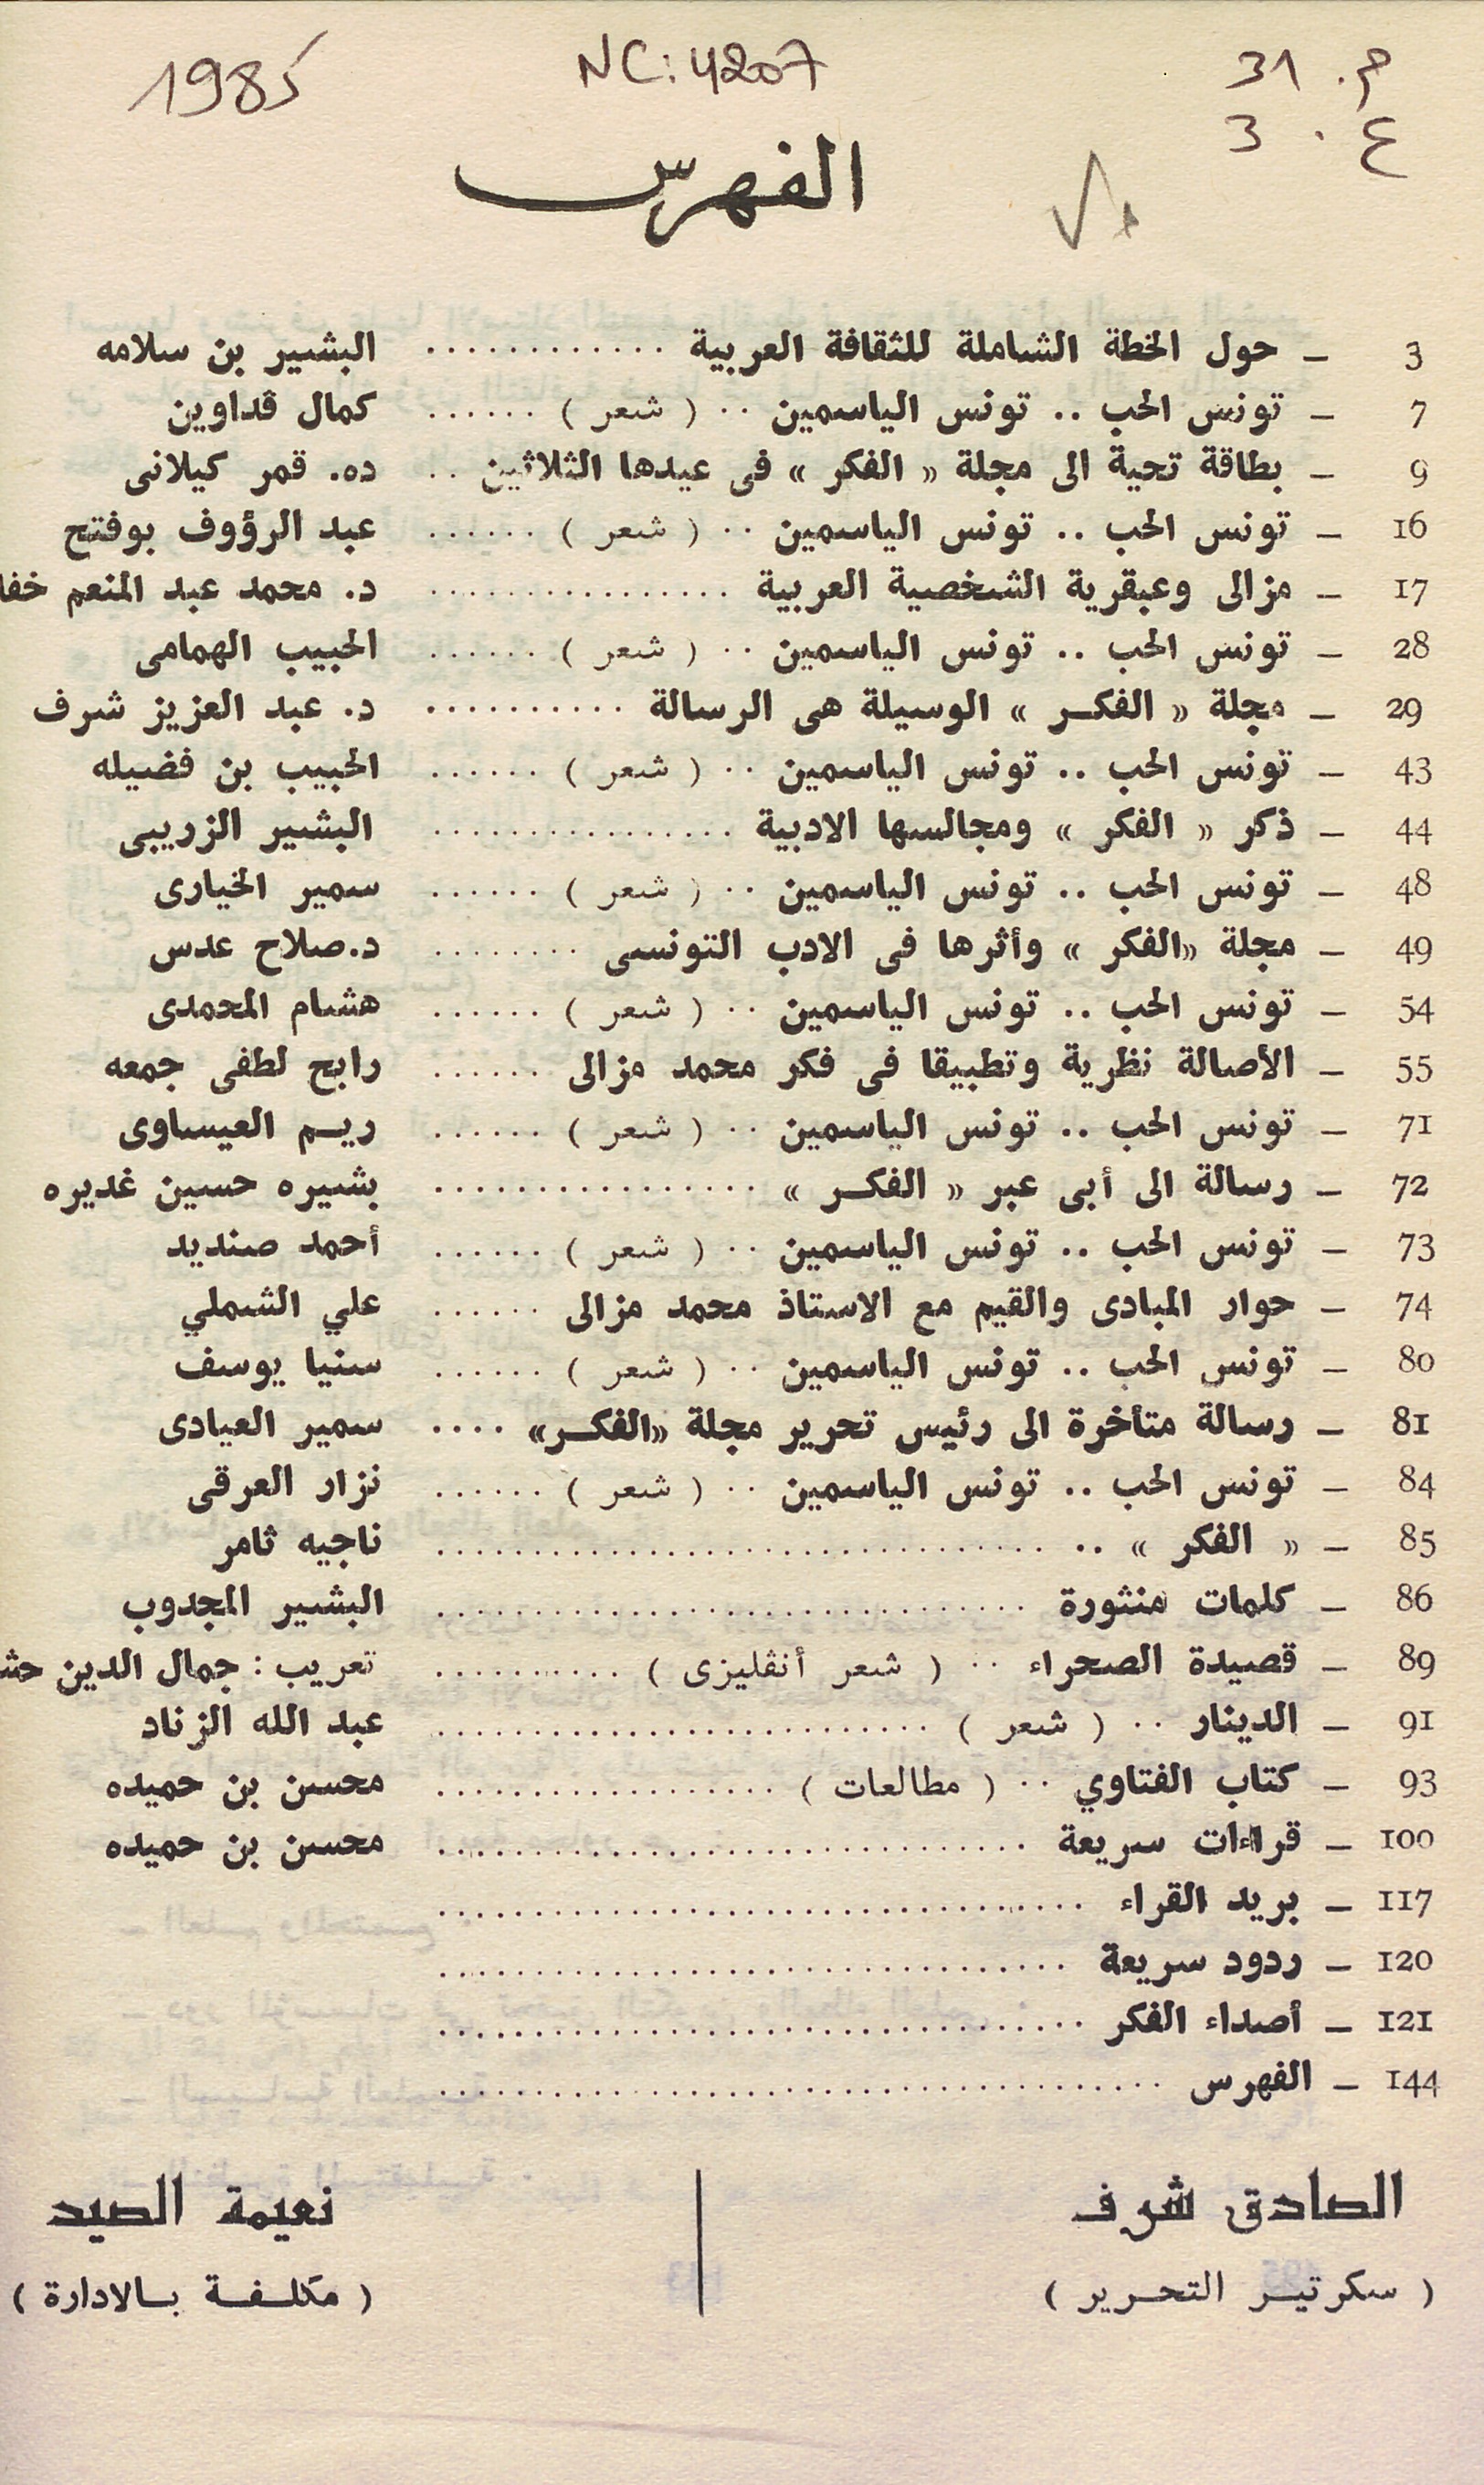 م. 31
NC: 4207
1985
ع. 3
الفهرس
3 – حول الخطة الشاملة للثقافة العربية ............ البشير بن سلامه
7 – تونس الحب .. تونس الياسمين .. ( شعر ) ...... كمال ڤداوين
9 – بطاقة تحية الى مجلة « الفكر » فى عيدها الثلاثين .. ده. قمر كيلانى
16 – تونس الحب .. تونس الياسمين .. ( شعر ) ...... عبد الرؤوف بوفتح
17 – مزالى وعبقرية الشخصية العربية ............... د. محمد عبد المنعم خفا
28 – تونس الحب .. تونس الياسمين .. ( شعر ) ...... الحبيب الهمامى
29 – مجلة « الفكر » الوسيلة هى الرسالة .......... د. عبد العزيز شرف
43 – تونس الحب .. تونس الياسمين .. ( شعر ) ...... الحبيب بن فضيله
44 – ذكر « الفكر » ومجالسها الادبية ............... البشير الزريبى
48 – تونس الحب .. تونس الياسمين .. ( شعر ) ...... سمير الخيارى
49 – مجلة «الفكر » وأثرها فى الادب التونسى ........ د.صلاح عدس
54 – تونس الحب .. تونس الياسمين .. ( شعر ) ...... هشام المحمدى
55 – الأصالة نظرية وتطبيقا فى فكر محمد مزالى ...... رابح لطفى جمعه
71 – تونس الحب .. تونس الياسمين .. ( شعر ) ...... ريم العيساوى
72 – رسالة الى أبى عبر « الفكر » ................ بشيره حسين غديره
73 – تونس الحب .. تونس الياسمين .. ( شعر ) ...... أحمد صنديد
74 – حوار المبادى والقيم مع الاستاذ محمد مزالى ...... علي الشملي
80 – تونس الحب .. تونس الياسمين .. ( شعر ) ...... سنيا يوسف
81 – رسالة متأخرة الى رئيس تحرير مجلة «الفكر» .... سمير العيادى
84 – تونس الحب .. تونس الياسمين .. ( شعر ) ...... نزار العرقى
85 – « الفكر » .. ............................ ناجيه ثامر
86 – كلمات منثورة ............................. البشير المجدوب
89 – قصيدة الصحراء .. ( شعر أنڤليزى ) .......... تعريب : جمال الدين حش
91 – الدينار .. ( شعر ) ......................... عبد الله الزناد
93 – كتاب الفتاوي .. ( مطالعات ) ................. محسن بن حميده
100 – قراءات سريعة ............................. محسن بن حميده
117 – بريد القراء ................................
120 – ردود سريعة ...............................
121 – أصداء الفكر ................................
144 – الفهرس ....................................
الصادق شرف
نعيمة الصيد
( سكرتير التحرير )
( مكلفة بالادارة )